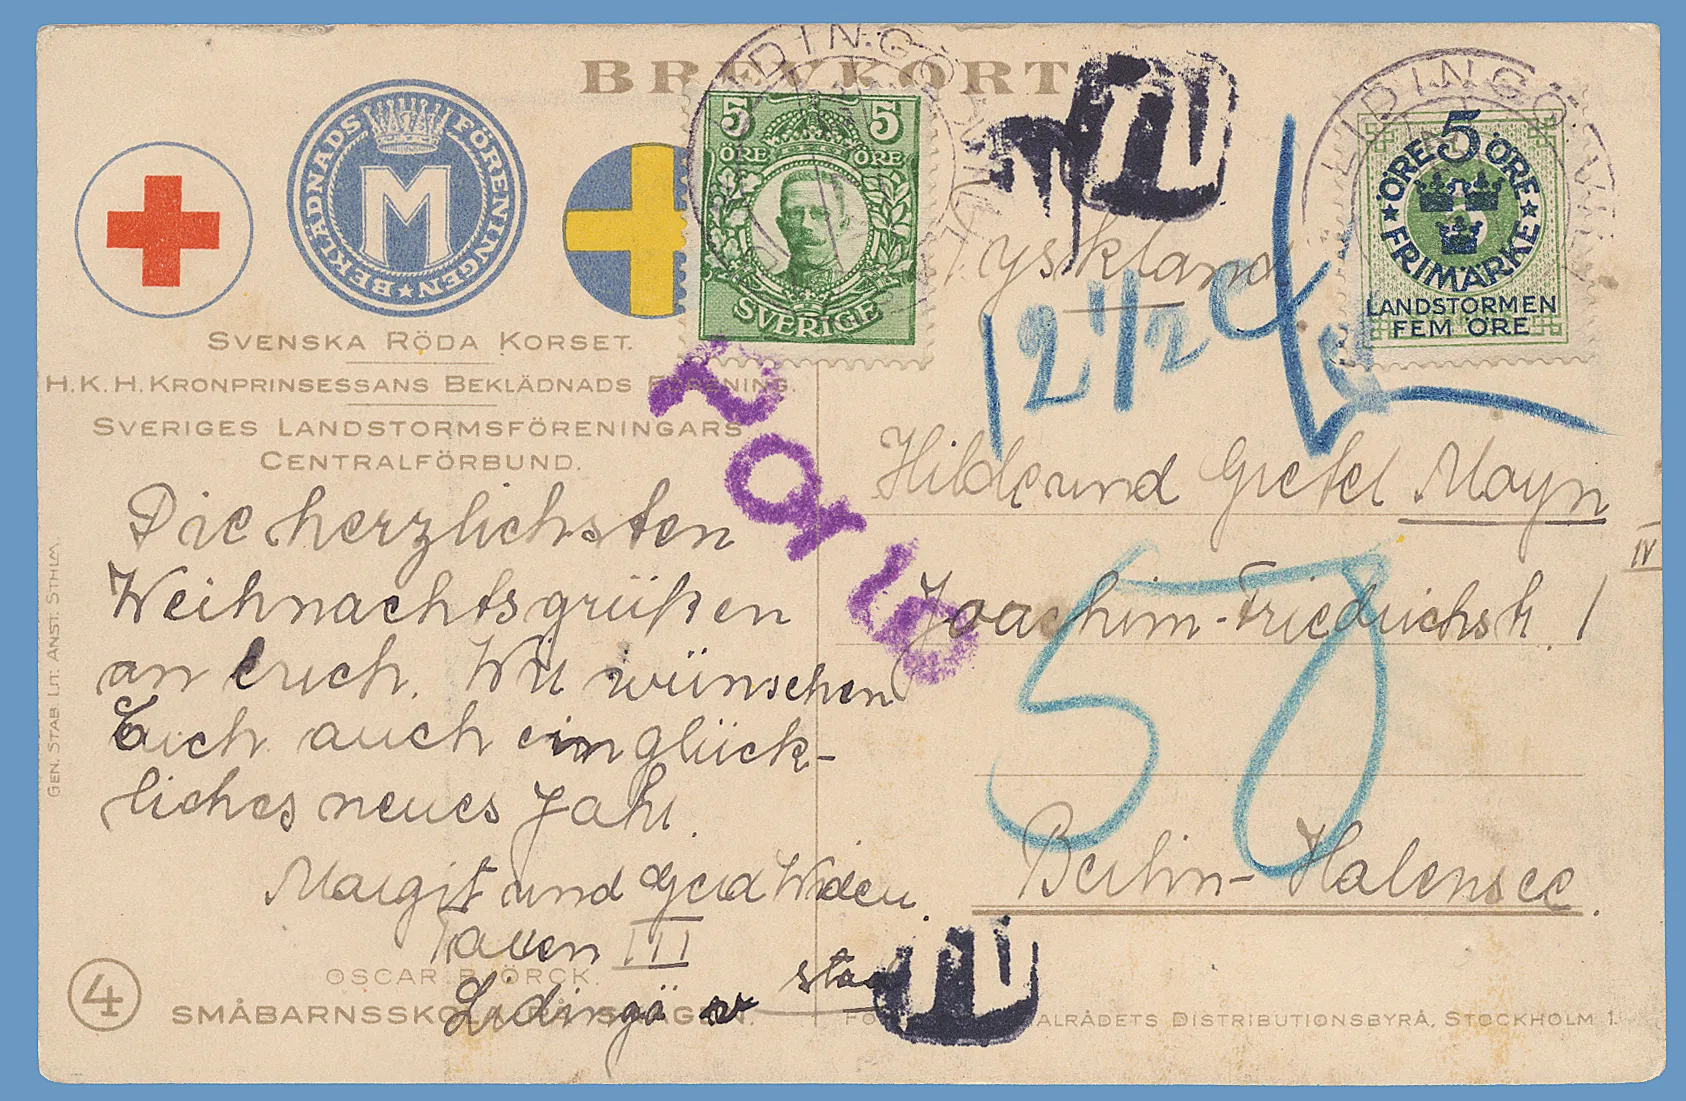 BREVKORT
BEKLÄDNADS FÖRENINGEN
M
SVENSKA RÖDA KORSET.
H.K.H. KRONPRINSESSANS BEKLÄDNADS FÖRENING.
SVERIGES LANDSTORMSFÖRENINGARS
CENTRALFÖRBUND.
GEN. STAB. LIT. ANST. STHLM.
LIDINGÖ VILLASTAD
5 5
ÖRE ÖRE
SVERIGE
LIDINGÖ
5
ÖRE ÖRE
FRIMÄRKE
LANDSTORMEN
FEM ÖRE
T
Tyskland
12 1/2 c
Porto
Hilde und Gretel Mayn
IV
Joachim-Friedrichstr. 1
50
Berlin-Halensee.
Die herzlichsten
Weihnachtsgrüßen
an euch. Wir wünschen
Euch auch ein glück-
liches neues Jahr.
Margit und Gerd
III
Lidingö
T
OSCAR BJÖRCK.
4
SMÅBARNSSKOLA PÅ SKAGEN.
ALRÅDETS DISTRIBUTIONSBYRÅ, STOCKHOLM 1.